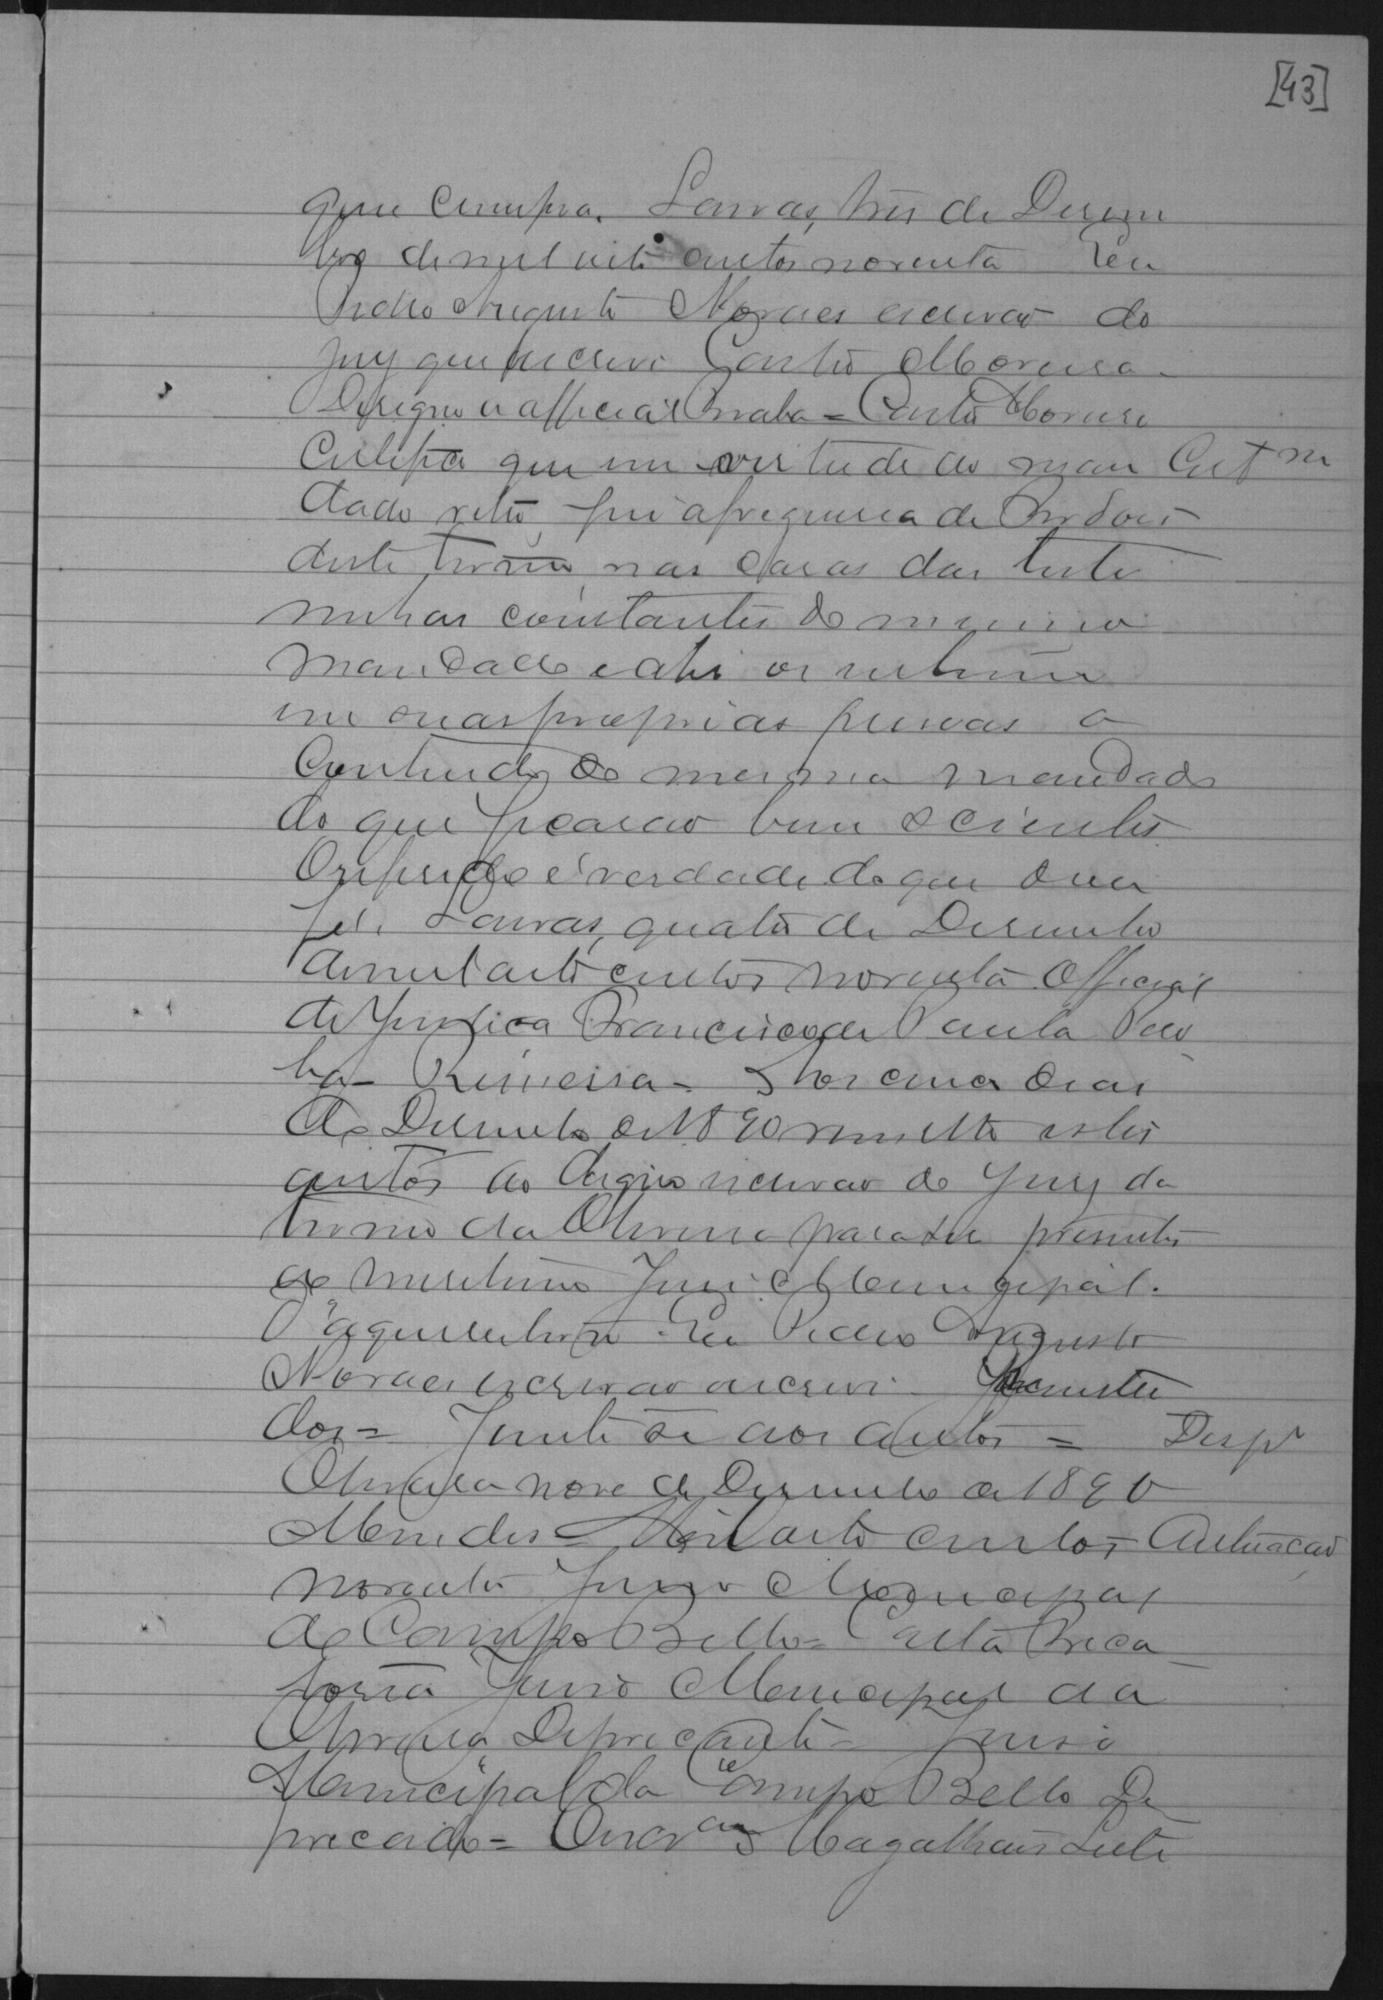 [43]
que cumpra. Lavras, tres de Desem
bro de mil oito centos noventa Eu
Pedro Augusto Moraes escrivão do
Jury que escrevi Castro Moreira.
Designo o official = Castro Moreira
Certifico que em virtude do man Cert m
dado retro, fui a freguesia de Perdões
deste termo, nas casas das teste
munhas constantes do mesmo
mandado e ahi os intimei
em suas proprias pessoas o
Conteudo do mesmo mandado
do que ficarão bem scientes
O referido é verdade do que dou
fé. Lavras, quatro de Desembro
de mil oito centos noventa Official
de Justiça Francisco de Paula
Remessa = Aos cinco dias
de Desembro de 1890 remetto estes
autos ao digno escrivão do Jury do
termo da Oliveira para ser presente
ao meritissimo Juiz Municipal.
Eu Pedro Augusto
Moraes escrivão escrevi
dos = Junte se aos autos = Desp°
Oliveira nove de Desembro de 1890
Mendes = Mil oito centos Autuação
noventa Juizo Municipal
de Campo Bello = Carta Preca
toria Juizo Municipal da
Oliveira Deprecante = Juiso
Municipal da Campo Bello De
precado = Escr am Magalhães Leite